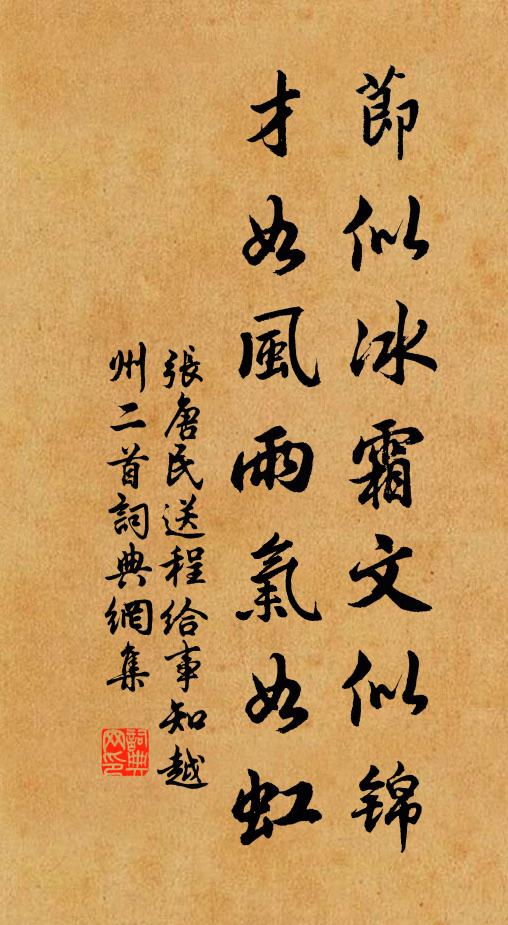 節似冰霜文似锦
才如風雨氣如虹
張唐民送程給事知越
州二首詞典網集
詞典网印